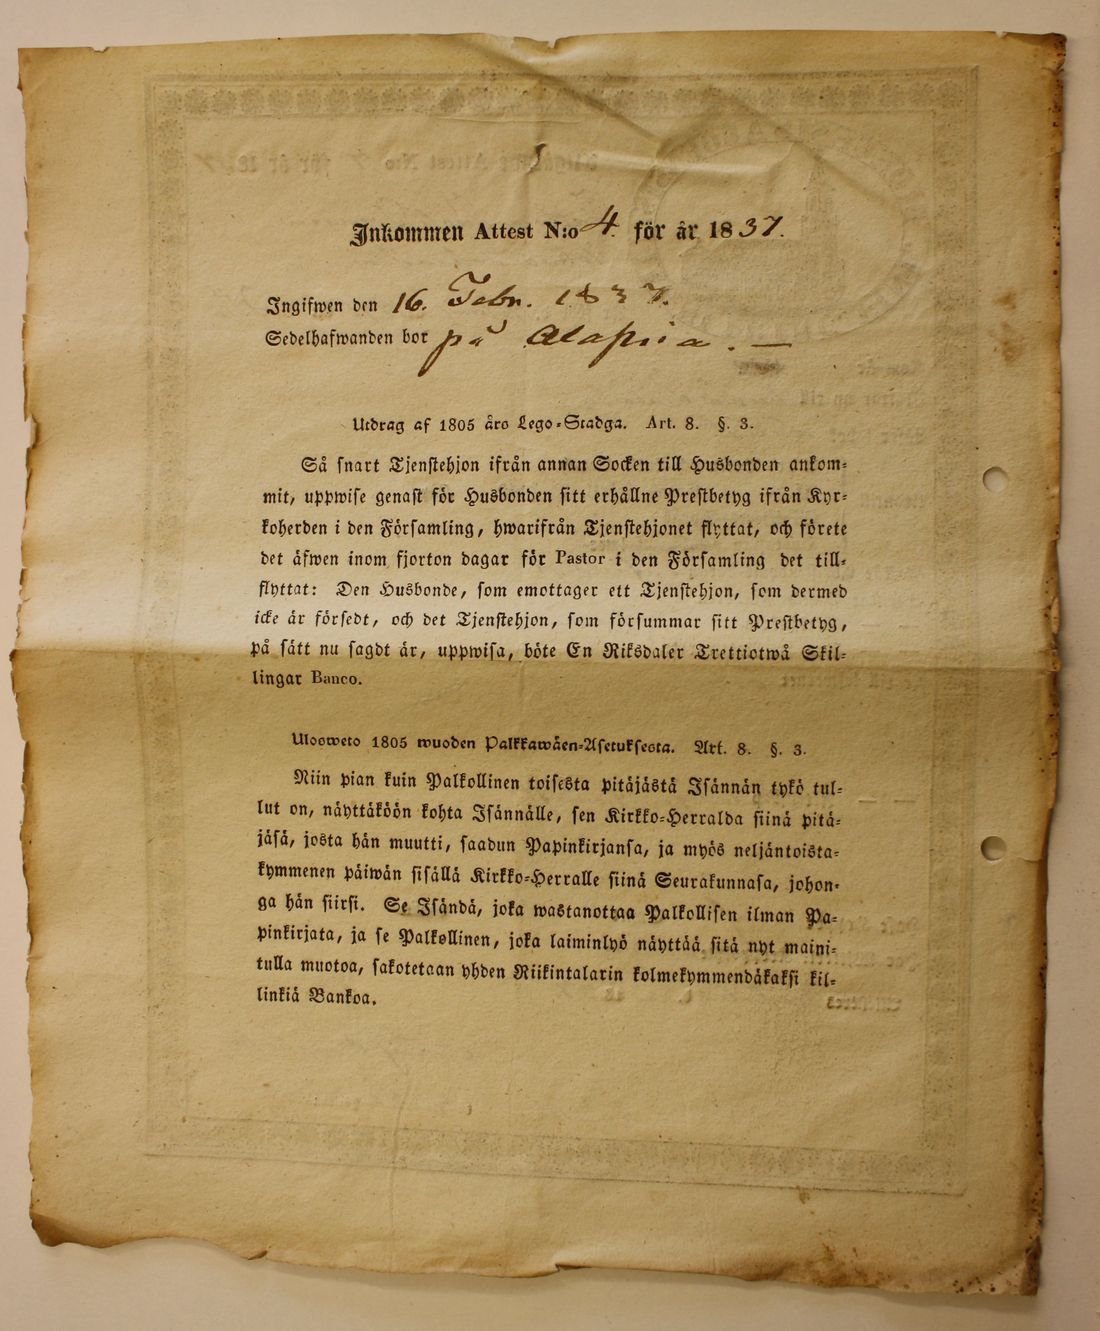 Inkommen Attest N:o 4. för år 1837.
Ingifwen den 16. Febr. 1837.
Sedelhafwanden bor på Alapiia. —
Utdrag af 1805 års Lego-Stadga. Art. 8. §. 3.
Så snart Tjenstehjon ifrån annan Socken till Husbonden ankom-
mit, uppwise genast för Husbonden sitt erhållne Prestbetyg ifrån Kyr-
koherden i den Församling, hwarifrån Tjenstehjonet flyttat, och förete
det äfwen inom fjorton dagar för Pastor i den Församling det till-
flyttat: Den Husbonde, som emottager ett Tjenstehjon, som dermed
icke är försedt, och det Tjenstehjon, som försummar sitt Prestbetyg,
på sätt nu sagdt är, uppwisa, böte En Riksdaler Trettiotwå Skil-
lingar Banco.
Ulosweto 1805 wuoden Palkkawäen-Asetuksesta. Art. 8. §. 3.
Niin pian kuin Palkollinen toisesta pitäjästä Isännän tykö tul-
lut on, näyttäköön kohta Isännälle, sen Kirkko-Herralda siinä pitä-
jäsä, josta hän muutti, saadun Papinkirjansa, ja myös neljäntoista-
kymmenen päiwän sisällä Kirkko-Herralle siinä Seurakunnasa, johon-
ga hän siirsi. Se Isändä, joka wastanottaa Palkollisen ilman Pa-
pinkirjata, ja se Palkollinen, joka laiminlyö näyttää sitä nyt maini-
tulla muotoa, sakotetaan yhden Riikintalarin kolmekymmendäkaksi kil-
linkiä Bankoa.